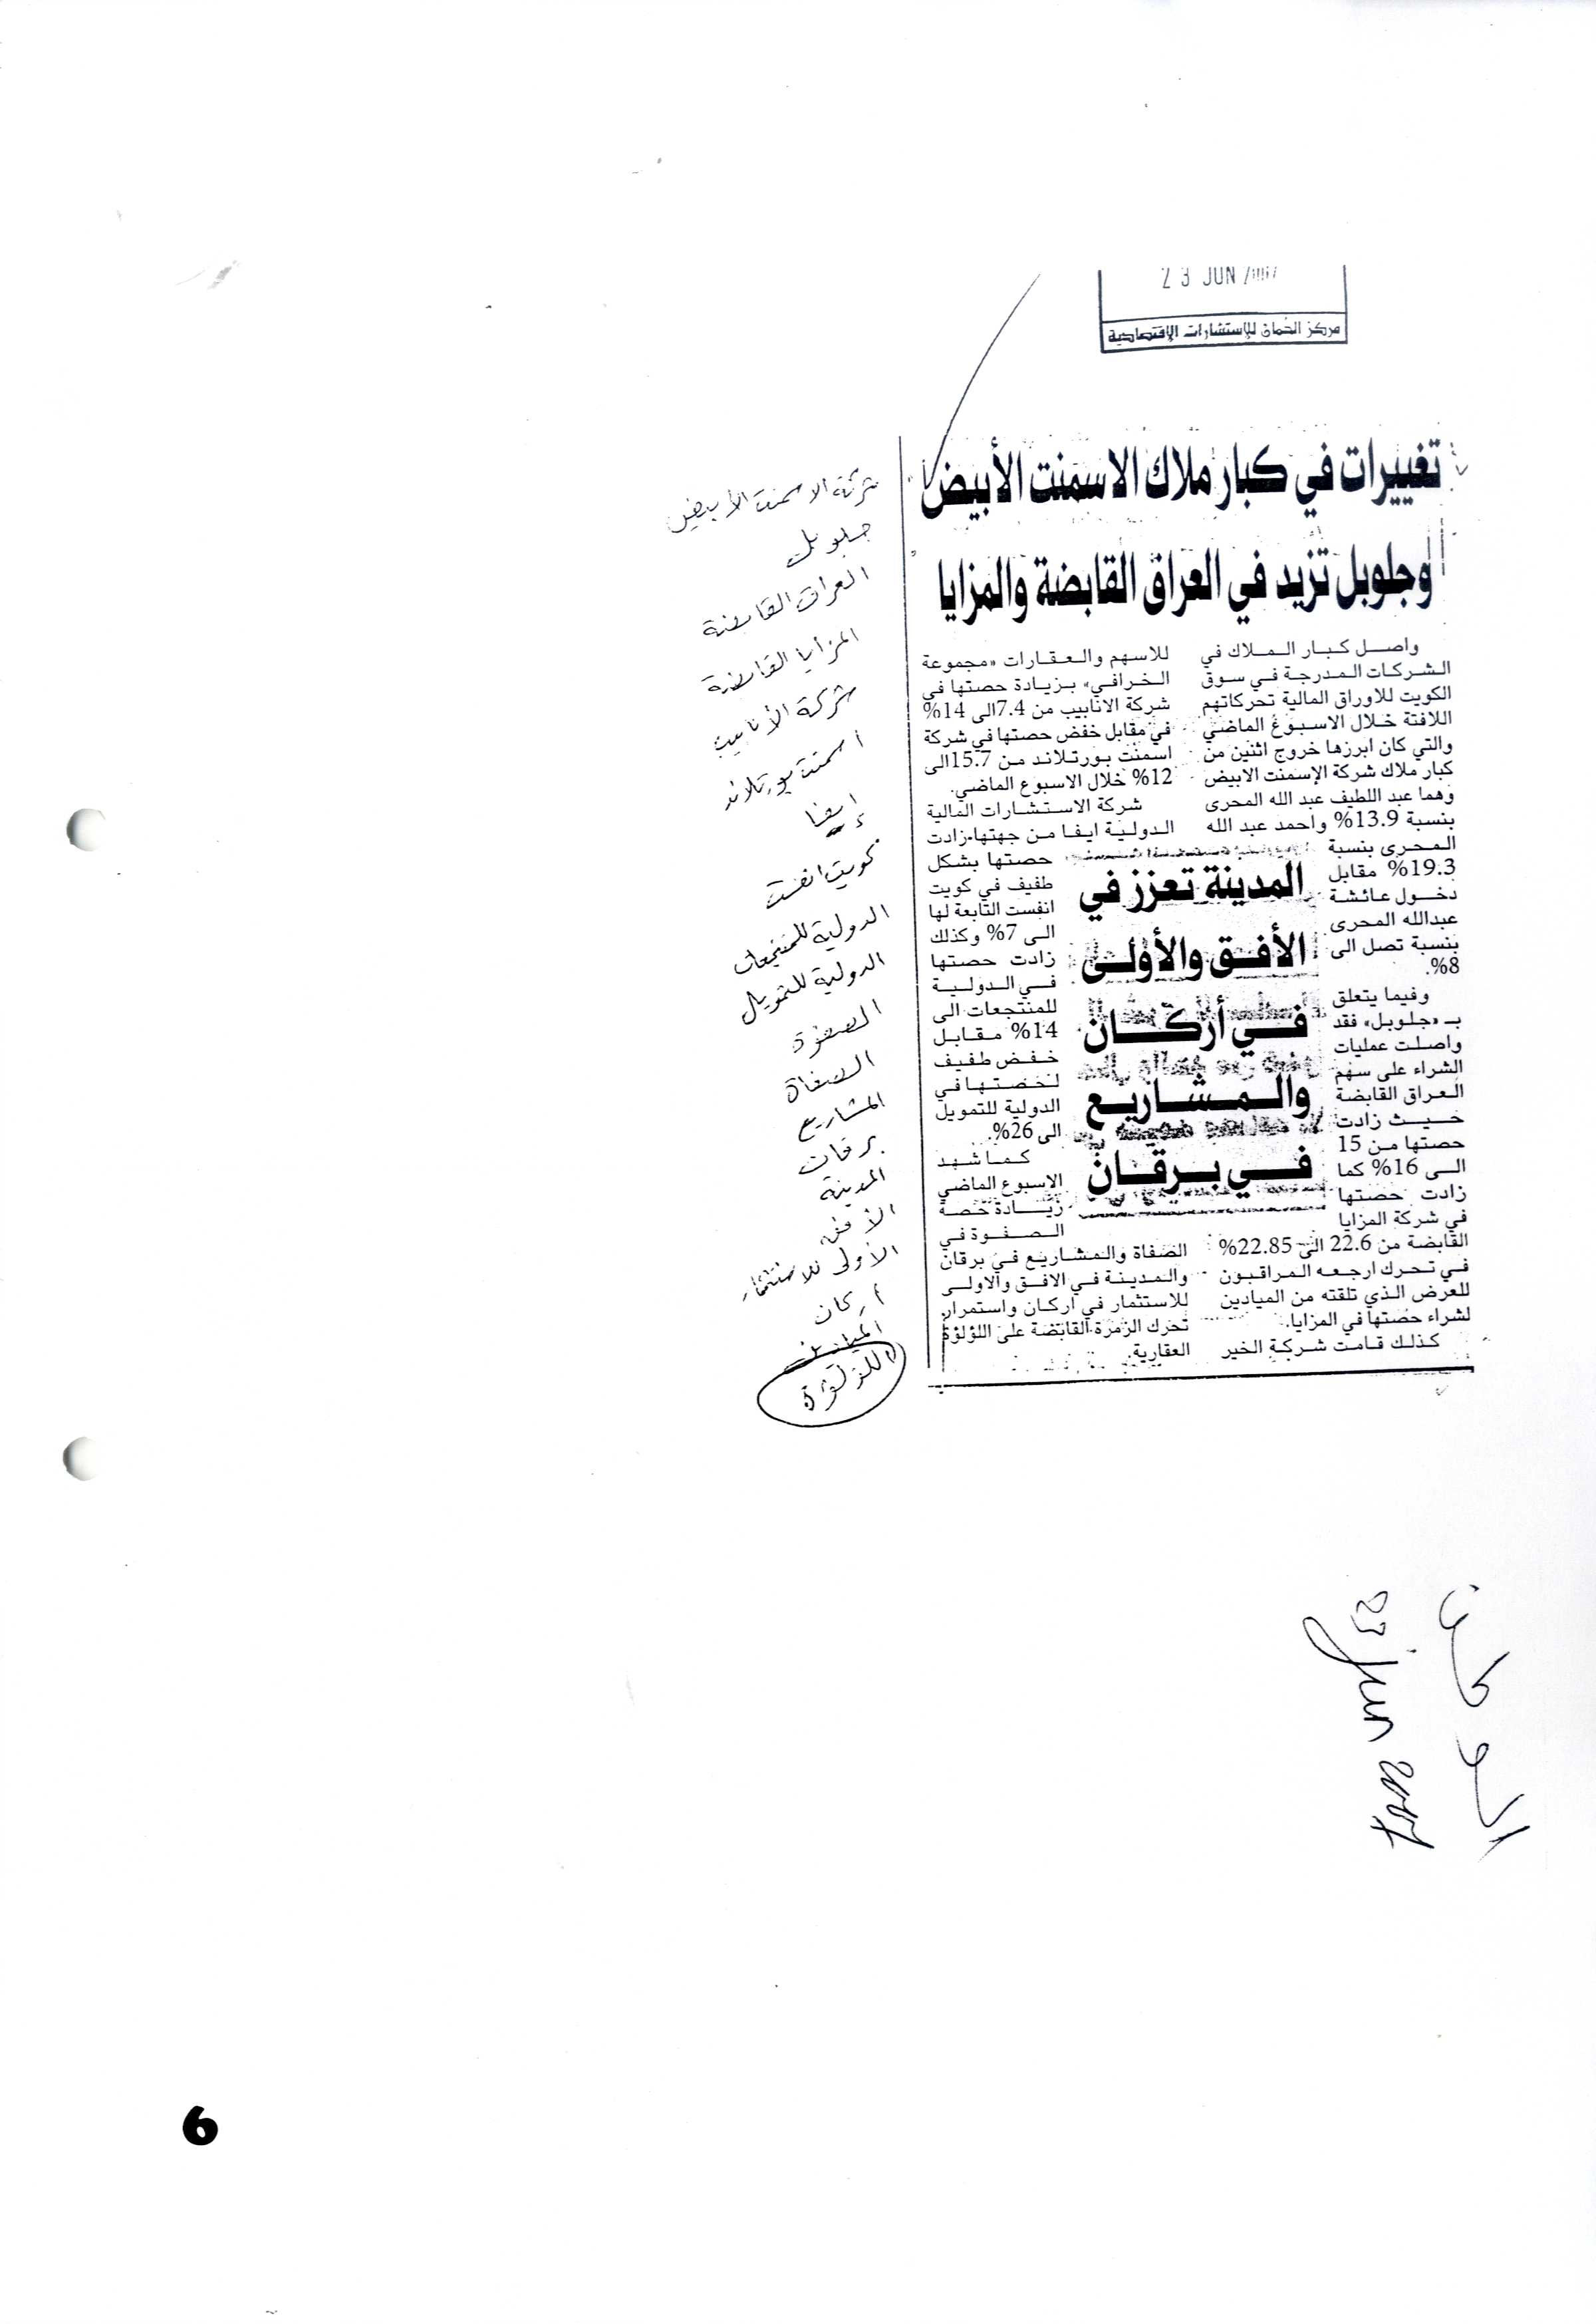 23 JUN 2007
مركز الجمان للإستشارات الإقتصادية
تغييرات في كبار ملاك الاسمنت الأبيض
وجلوبل تزيد في العراق القابضة والمزايا
واصل كبار الملاك في
الشركات المدرجة في سوق
الكويت للاوراق المالية تحركاتهم
اللافتة خلال الاسبوع الماضي
والتي كان ابرزها خروج اثنين من
كبار ملاك شركة الإسمنت الابيض
وهما عبد اللطيف عبد الله المحرى
بنسبة 13.9% واحمد عبد الله
المحرى بنسبة
19.3% مقابل
دخول عائشة
عبدالله المحرى
بنسبة تصل الى
8%.
وفيما يتعلق
بـ «جلوبل» فقد
واصلت عمليات
الشراء على سهم
العراق القابضة
حيث زادت
حصتها من 15
الى 16% كما
زادت حصتها
في شركة المزايا
القابضة من 22.6 الى 22.85%
في تحرك ارجعه المراقبون
للعرض الذي تلقته من الميادين
لشراء حصتها في المزايا.
كذلك قامت شركة الخير
للاسهم والعقارات «مجموعة
الخرافي» بزيادة حصتها في
شركة الانابيب من 7.4 الى 14%
في مقابل خفض حصتها في شركة
اسمنت بورتلاند من 15.7 الى
12% خلال الاسبوع الماضي.
شركة الاستشارات المالية
الدولية ايفا من جهتها زادت
حصتها بشكل
طفيف في كويت
انفست التابعة لها
الى 7% وكذلك
زادت حصتها
في الدولية
للمنتجعات الى
14% مقابل
خفض طفيف
لحصتها في
الدولية للتمويل
الى 26%.
كما شهد
الاسبوع الماضي
زيادة حصة
الصفوة في
الصفاة والمشاريع في برقان
والمدينة في الافق والاولى
للاستثمار في اركان واستمرار
تحرك الزمرة القابضة على اللؤلؤة
العقارية.
المدينة تعزز في
الأفق والأولى
في أركان
والمشاريع
في برقان
شركة الاسمنت الأبيض
جلوبل
العراق القابضة
المزايا القابضة
شركة الأنابيب
اسمنت بورتلاند
إيفا
كويت انفست
الدولية للمنتجعات
الدولية للتمويل
الصفوة
الصفاة
المشاريع
برقان
المدينة
الأفق
الأولى للاستثمار
أركان
الميادين
اللؤلؤة
الوطن
23 Jun 2007
6